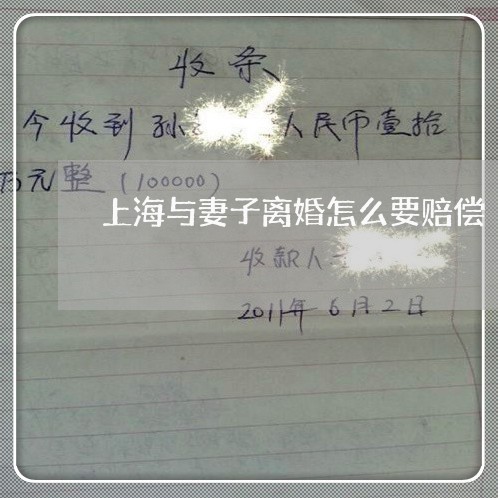 收条
今收到孙 人民币壹拾
万元整(100000)
上海与妻子离婚怎么要赔偿
收款人
2011年6月2日